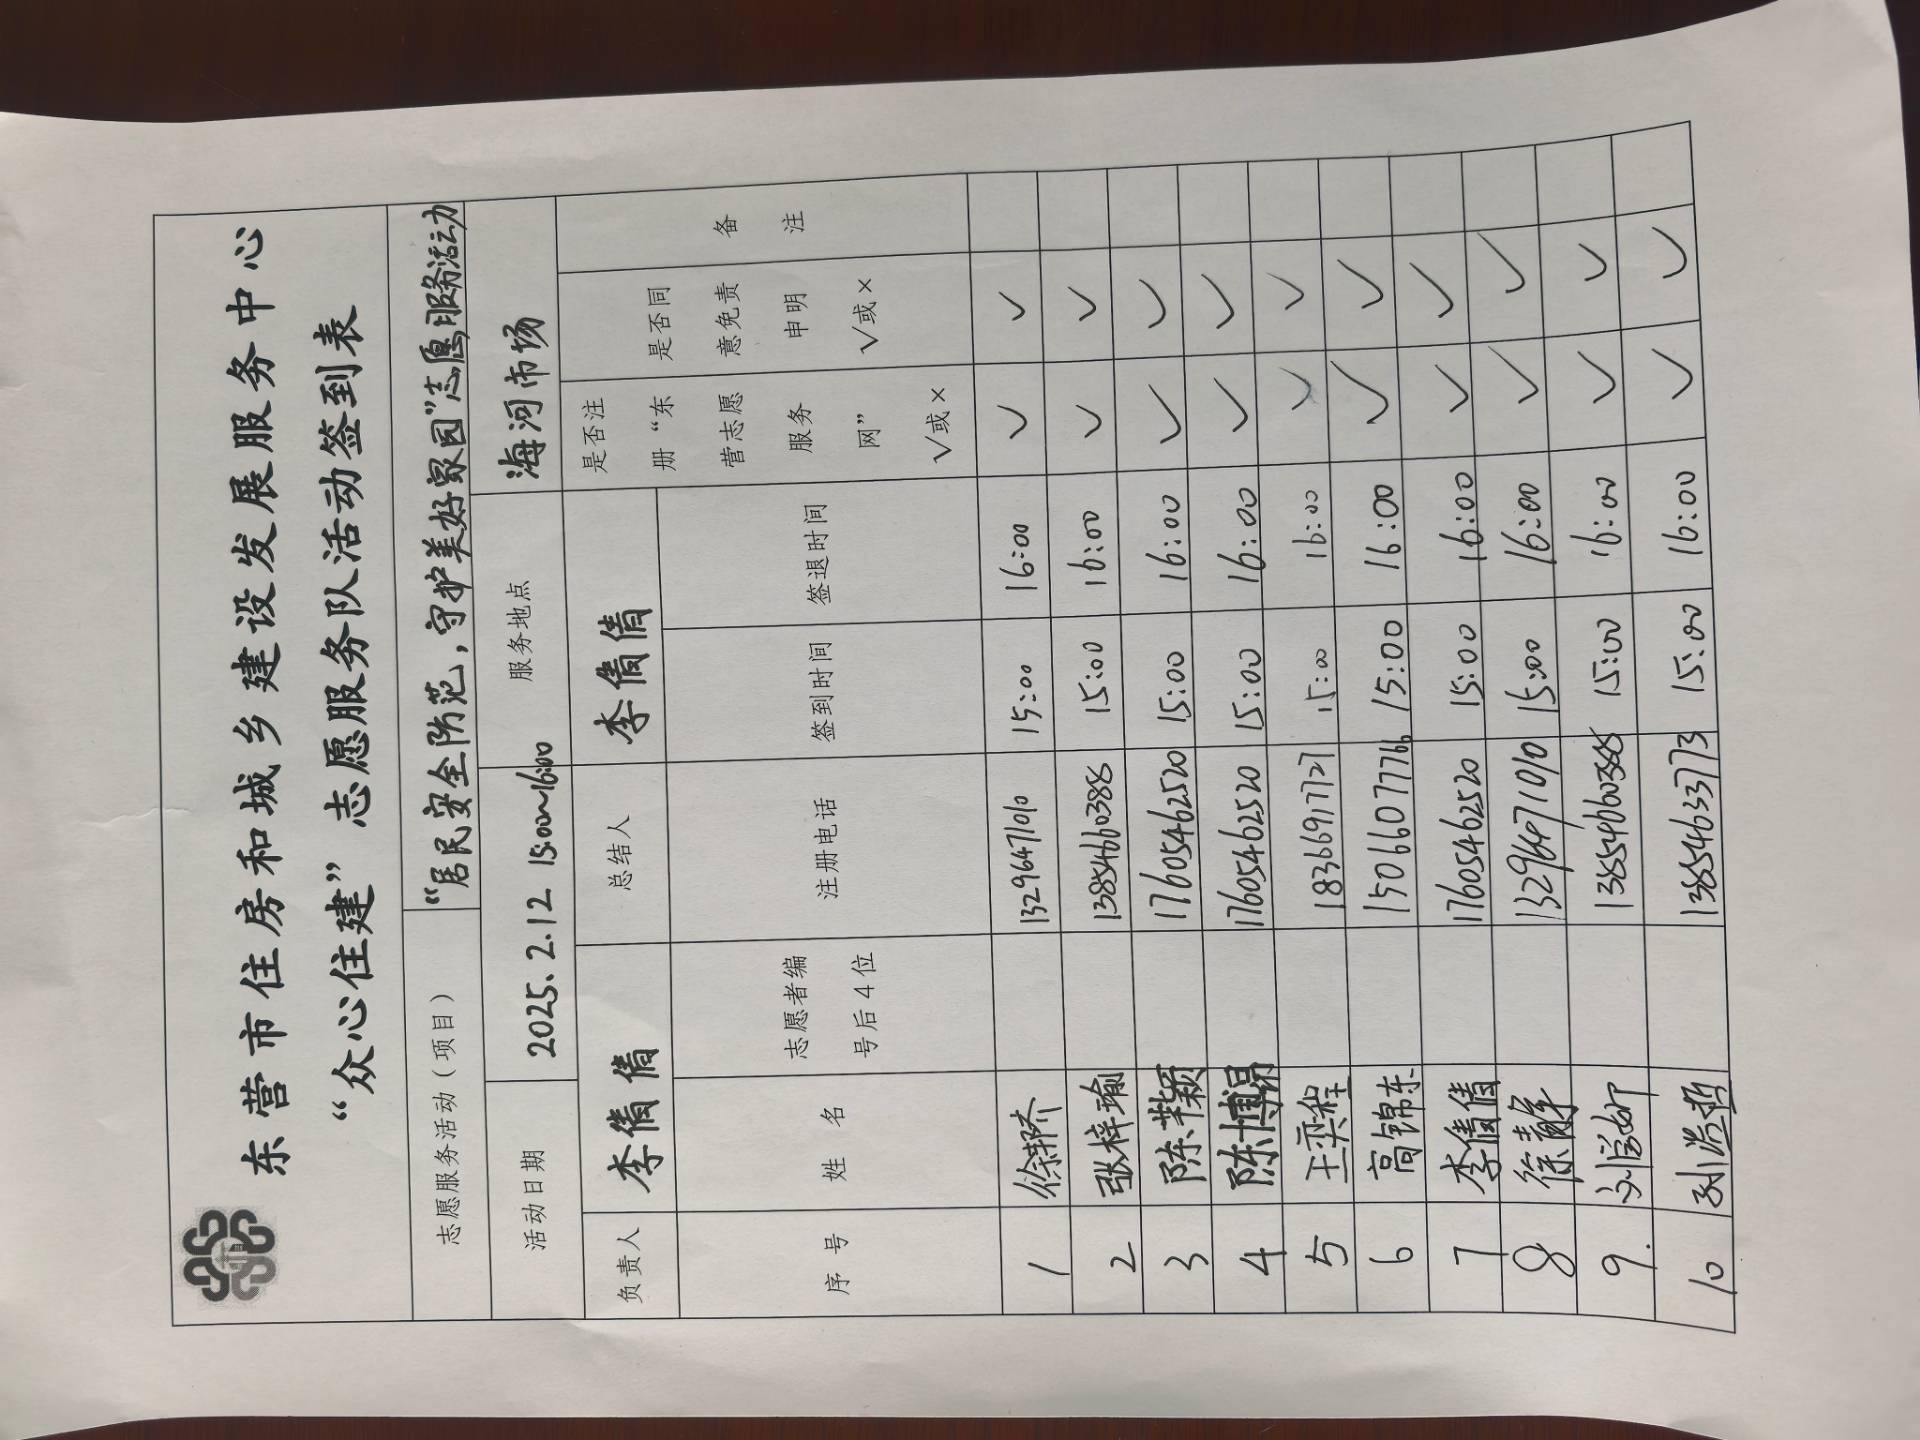 东营市住房和城乡建设发展服务中心
“众心住建”志愿服务队活动签到表
志愿服务活动（项目） “居民安全防范，守护美好家园”志愿服务活动
活动日期 2025.2.12 15:00~16:00 服务地点 海河市场
负责人 李倩倩 总结人 李倩倩
序号 姓名 志愿者编号后4位 注册电话 签到时间 签退时间 是否注册“东营志愿服务网”√或× 是否同意免责申明√或× 备注
1 13296471010 15:00 16:00 √ √
2 张梓瑜 13854660388 15:00 16:00 √ √
3 陈美颖 17605462520 15:00 16:00 √ √
4 陈博昂 17605462520 15:00 16:00 √ √
5 王奕程 18366917727 15:00 16:00 √ √
6 高锦东 15066077766 15:00 16:00 √ √
7 李倩倩 17605462520 15:00 16:00 √ √
8 徐静 13296471010 15:00 16:00 √ √
9. 13854660388 15:00 16:00 √ √
10 13854633773 15:00 16:00 √ √